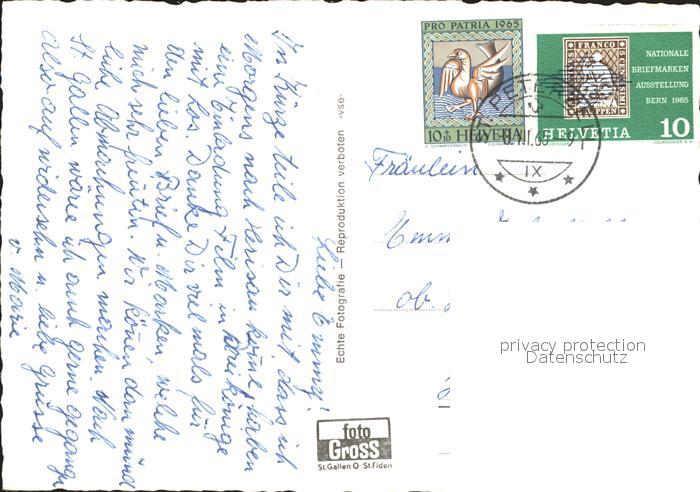 Liebe Emmy!
In Kürze teile ich Dir mit, dass ich
Morgens nach Herisau komme, haben
eine Einladung Film in Dreikönige
mit los. Danke Dir vielmals für
den lieben Brief u. Marken welche
mich sehr freuten. Wir können dann münd
liche Abmachungen machen. Nach
St. Gallen wäre ich auch gerne gegangen
also auf wiedersehn u. liebe Grüsse
v. Marie
Echte Fotografie — Reproduktion verboten -vse-
foto
Gross
St.Gallen O St.Fiden
PRO PATRIA 1965
10+10 HELVETIA
FRANCO
NATIONALE
BRIEFMARKEN
AUSSTELLUNG
BERN 1965
HELVETIA 10
COURVOISIER S.A.
IX
Fräulein
Emm
ob.
privacy protection
Datenschutz